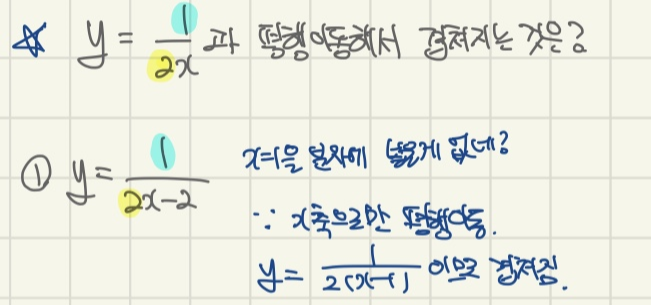 ☆ y = 1/2x 과 평행이동해서 겹쳐지는 것은?
① y = 1/2x-2 x=1을 분자에 넣을게 없네?
∵ x축으로만 평행이동.
y = 1/2(x-1) 이므로 겹쳐짐.